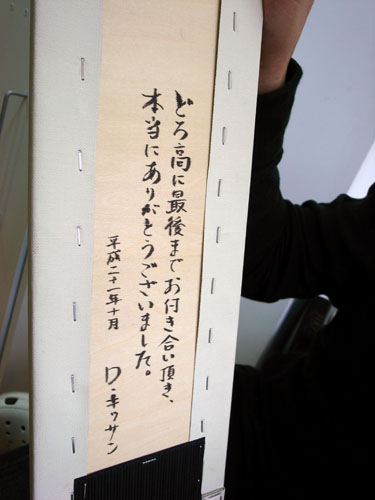 どろ高に最後までお付き合い頂き、
本当にありがとうございました。
平成二十一年十月
D・キッサン